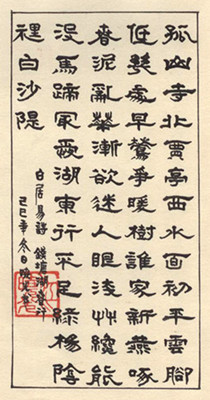 孤山寺北賈亭西水面初平雲腳
低幾處早鶯爭暖樹誰家新燕啄
春泥亂華漸欲迷人眼淺草纔能
沒馬蹄冣愛湖東行不足綠楊陰
裡白沙隄
白居易詩 錢塘湖春行
己巳年冬日